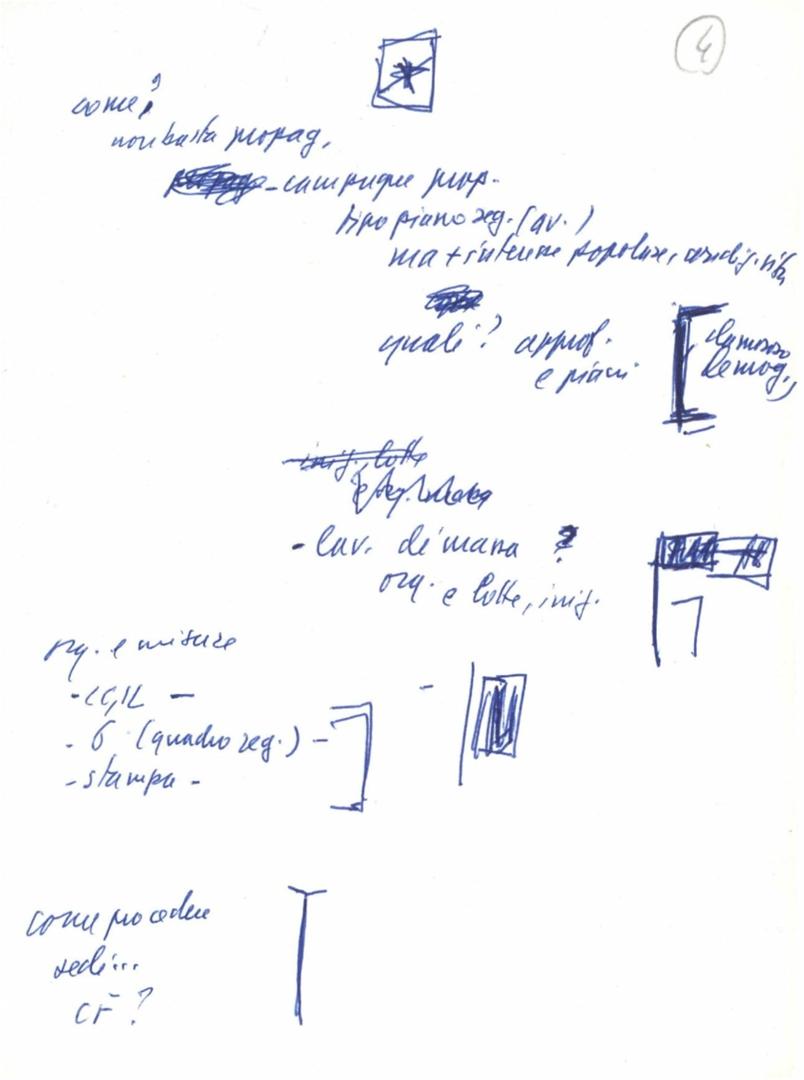 4
come?
non basta propag.
- campagne prop.
tipo piano reg. (av.)
ma + intense popolare,
quali? approf.
e piani
clamoroso
demog.,
iniz., lotte
- lav. di massa ?
org. e lotte, iniz.
org. e misure
- CGIL -
- 6 (quadro reg.) -
- stampa -
come procedere
sedi...
CF ?